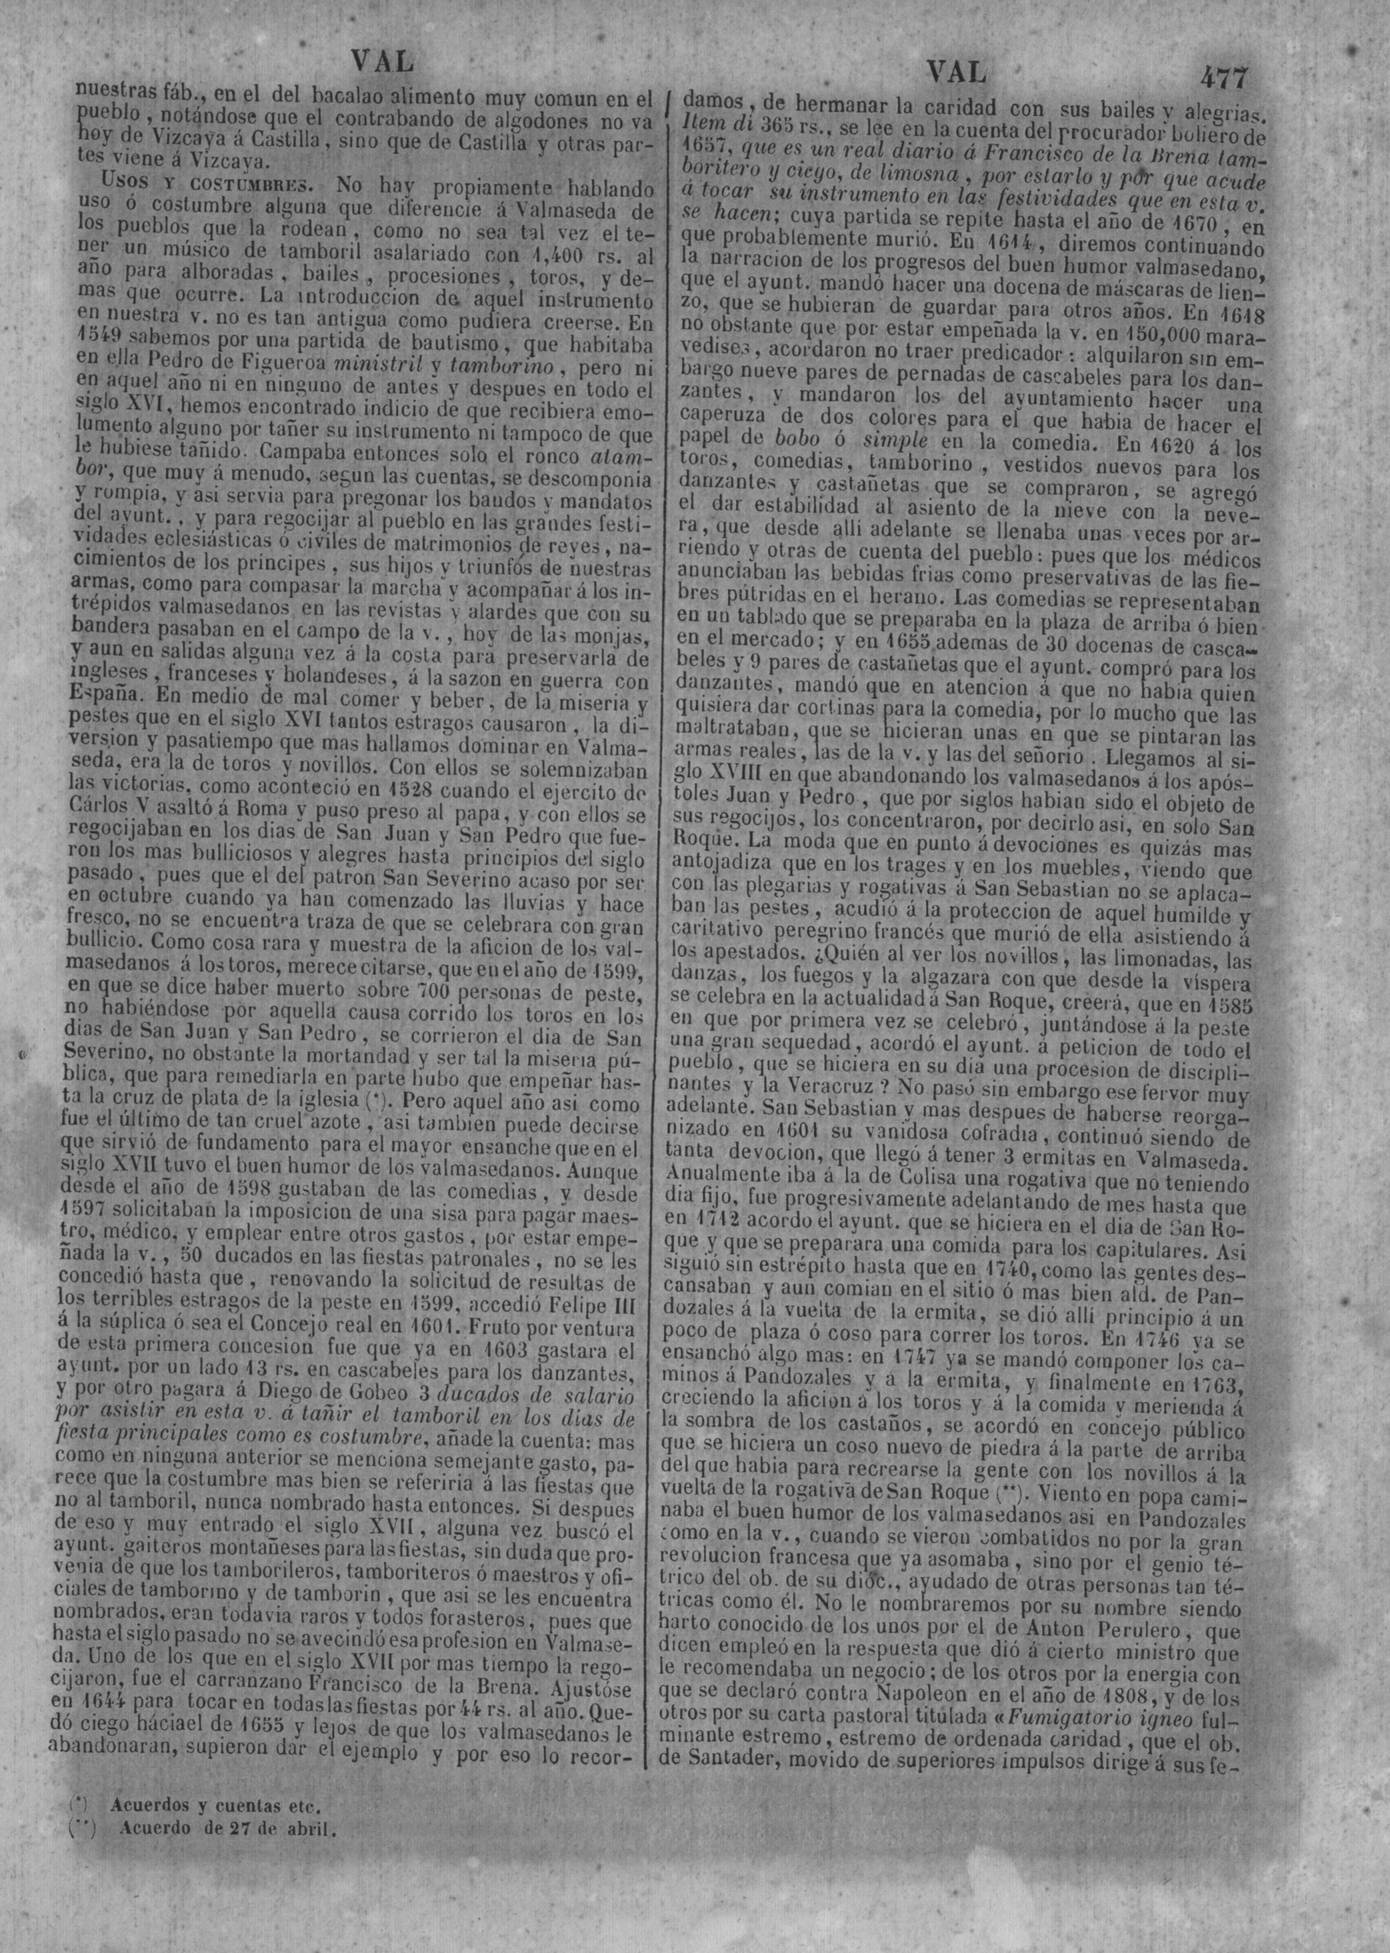 VAL
nuestras fáb., en el del bacalao alimento muy comun en el
pueblo, notándose que el contrabando de algodones no va
hoy de Vizcaya á Castilla, sino que de Castilla y otras par-
tes viene á Vizcaya.
USOS Y COSTUMBRES. No hay propiamente hablando
uso ó costumbre alguna que diferencie á Valmaseda de
los pueblos que la rodean, como no sea tal vez el te-
ner un músico de tamboril asalariado con 1,400 rs. al
año para alboradas, bailes, procesiones, toros, y de-
mas que ocurre. La introduccion de aquel instrumento
en nuestra v. no es tan antigua como pudiera creerse. En
1549 sabemos por una partida de bautismo, que habitaba
en ella Pedro de Figueroa ministril y tamborino, pero ni
en aquel año ni en ninguno de antes y despues en todo el
siglo XVI, hemos encontrado indicio de que recibiera emo-
lumento alguno por tañer su instrumento ni tampoco de que
le hubiese tañido. Campaba entonces solo el ronco atam-
bor, que muy á menudo, segun las cuentas, se descomponia
y rompia, y asi servia para pregonar los bandos y mandatos
del ayunt., y para regocijar al pueblo en las grandes festi-
vidades eclesiásticas ó civiles de matrimonios de reyes, na-
cimientos de los principes, sus hijos y triunfos de nuestras
armas, como para compasar la marcha y acompañar á los in-
trépidos valmasedanos en las revistas y alardes que con su
bandera pasaban en el campo de la v., hoy de las monjas,
y aun en salidas alguna vez á la costa para preservarla de
ingleses, franceses y holandeses, á la sazon en guerra con
España. En medio de mal comer y beber, de la miseria y
pestes que en el siglo XVI tantos estragos causaron, la di-
version y pasatiempo que mas hallamos dominar en Valma-
seda, era la de toros y novillos. Con ellos se solemnizaban
las victorias, como aconteció en 1528 cuando el ejercito de
Cárlos V asaltó á Roma y puso preso al papa, y con ellos se
regocijaban en los dias de San Juan y San Pedro que fue-
ron los mas bulliciosos y alegres hasta principios del siglo
pasado, pues que el del patron San Severino acaso por ser
en octubre cuando ya han comenzado las lluvias y hace
fresco, no se encuentra traza de que se celebrara con gran
bullicio. Como cosa rara y muestra de la aficion de los val-
masedanos á los toros, merece citarse, que en el año de 1599,
en que se dice haber muerto sobre 700 personas de peste,
no habiéndose por aquella causa corrido los toros en los
dias de San Juan y San Pedro, se corrieron el dia de San
Severino, no obstante la mortandad y ser tal la miseria pú-
blica, que para remediarla en parte hubo que empeñar has-
ta la cruz de plata de la iglesia (*). Pero aquel año asi como
fue el último de tan cruel azote, asi tambien puede decirse
que sirvió de fundamento para el mayor ensanche que en el
siglo XVII tuvo el buen humor de los valmasedanos. Aunque
desde el año de 1598 gustaban de las comedias, y desde
1597 solicitaban la imposicion de una sisa para pagar maes-
tro, médico, y emplear entre otros gastos, por estar empe-
ñada la v., 50 ducados en las fiestas patronales, no se les
concedió hasta que, renovando la solicitud de resultas de
los terribles estragos de la peste en 1599, accedió Felipe III
á la súplica ó sea el Concejo real en 1601. Fruto por ventura
de esta primera concesion fue que ya en 1603 gastara el
ayunt. por un lado 13 rs. en cascabeles para los danzantes,
y por otro pagara á Diego de Gobeo 3 ducados de salario
por asistir en esta v. á tañir el tamboril en los dias de
fiesta principales como es costumbre, añade la cuenta: mas
como en ninguna anterior se menciona semejante gasto, pa-
rece que la costumbre mas bien se referiria á las fiestas que
no al tamboril, nunca nombrado hasta entonces. Si despues
de eso y muy entrado el siglo XVII, alguna vez buscó el
ayunt. gaiteros montañeses para las fiestas, sin duda que pro-
venia de que los tamborileros, tamboriteros ó maestros y ofi-
ciales de tamborino y de tamborin, que asi se les encuentra
nombrados, eran todavia raros y todos forasteros, pues que
hasta el siglo pasado no se avecindó esa profesion en Valmase-
da. Uno de los que en el siglo XVII por mas tiempo la rego-
cijaron, fue el carranzano Francisco de la Brena. Ajustóse
en 1644 para tocar en todas las fiestas por 44 rs. al año. Que-
dó ciego háciael de 1655 y lejos de que los valmasedanos le
abandonaran, supieron dar el ejemplo y por eso lo recor-
(*) Acuerdos y cuentas etc.
(**) Acuerdo de 27 de abril.
VAL 477
damos, de hermanar la caridad con sus bailes y alegrias.
Item di 365 rs., se lee en la cuenta del procurador boliero de
1657, que es un real diario á Francisco de la Brena tam-
boritero y ciego, de limosna, por estarlo y por que acude
á tocar su instrumento en las festividades que en esta v.
se hacen; cuya partida se repite hasta el año de 1670, en
que probablemente murió. En 1614, diremos continuando
la narracion de los progresos del buen humor valmasedano,
que el ayunt. mandó hacer una docena de máscaras de lien-
zo, que se hubieran de guardar para otros años. En 1618
no obstante que por estar empeñada la v. en 150,000 mara-
vedises, acordaron no traer predicador: alquilaron sin em-
bargo nueve pares de pernadas de cascabeles para los dan-
zantes, y mandaron los del ayuntamiento hacer una
caperuza de dos colores para el que habia de hacer el
papel de bobo ó simple en la comedia. En 1620 á los
toros, comedias, tamborino, vestidos nuevos para los
danzantes y castañetas que se compraron, se agregó
el dar estabilidad al asiento de la nieve con la neve-
ra, que desde alli adelante se llenaba unas veces por ar-
riendo y otras de cuenta del pueblo: pues que los médicos
anunciaban las bebidas frias como preservativas de las fie-
bres pútridas en el herano. Las comedias se representaban
en un tablado que se preparaba en la plaza de arriba ó bien
en el mercado; y en 1655 ademas de 30 docenas de casca-
beles y 9 pares de castañetas que el ayunt. compró para los
danzantes, mandó que en atencion á que no habia quien
quisiera dar cortinas para la comedia, por lo mucho que las
maltrataban, que se hicieran unas en que se pintaran las
armas reales, las de la v. y las del señorio. Llegamos al si-
glo XVIII en que abandonando los valmasedanos á los após-
toles Juan y Pedro, que por siglos habian sido el objeto de
sus regocijos, los concentraron, por decirlo asi, en solo San
Roque. La moda que en punto á devociones es quizás mas
antojadiza que en los trages y en los muebles, viendo que
con las plegarias y rogativas á San Sebastian no se aplaca-
ban las pestes, acudió á la proteccion de aquel humilde y
caritativo peregrino francés que murió de ella asistiendo á
los apestados. ¿Quién al ver los novillos, las limonadas, las
danzas, los fuegos y la algazara con que desde la víspera
se celebra en la actualidad á San Roque, creerá, que en 1585
en que por primera vez se celebró, juntándose á la peste
una gran sequedad, acordó el ayunt. á peticion de todo el
pueblo, que se hiciera en su dia una procesion de discipli-
nantes y la Veracruz? No pasó sin embargo ese fervor muy
adelante. San Sebastian y mas despues de haberse reorga-
nizado en 1601 su vanidosa cofradia, continuó siendo de
tanta devocion, que llegó á tener 3 ermitas en Valmaseda.
Anualmente iba á la de Colisa una rogativa que no teniendo
dia fijo, fue progresivamente adelantando de mes hasta que
en 1712 acordo el ayunt. que se hiciera en el dia de San Ro-
que y que se preparara una comida para los capitulares. Asi
siguió sin estrépito hasta que en 1740, como las gentes des-
cansaban y aun comian en el sitio ó mas bien ald. de Pan-
dozales á la vuelta de la ermita, se dió alli principio á un
poco de plaza ó coso para correr los toros. En 1746 ya se
ensanchó algo mas: en 1747 ya se mandó componer los ca-
minos á Pandozales y á la ermita, y finalmente en 1763,
creciendo la aficion á los toros y á la comida y merienda á
la sombra de los castaños, se acordó en concejo público
que se hiciera un coso nuevo de piedra á la parte de arriba
del que habia para recrearse la gente con los novillos á la
vuelta de la rogativa de San Roque (**). Viento en popa cami-
naba el buen humor de los valmasedanos asi en Pandozales
como en la v., cuando se vieron combatidos no por la gran
revolucion francesa que ya asomaba, sino por el genio té-
trico del ob. de su dióc., ayudado de otras personas tan té-
tricas como él. No le nombraremos por su nombre siendo
harto conocido de los unos por el de Anton Perulero, que
dicen empleó en la respuesta que dió á cierto ministro que
le recomendaba un negocio; de los otros por la energia con
que se declaró contra Napoleon en el año de 1808, y de los
otros por su carta pastoral titulada «Fumigatorio igneo ful-
minante estremo, estremo de ordenada caridad, que el ob.
de Santader, movido de superiores impulsos dirige á sus fe-